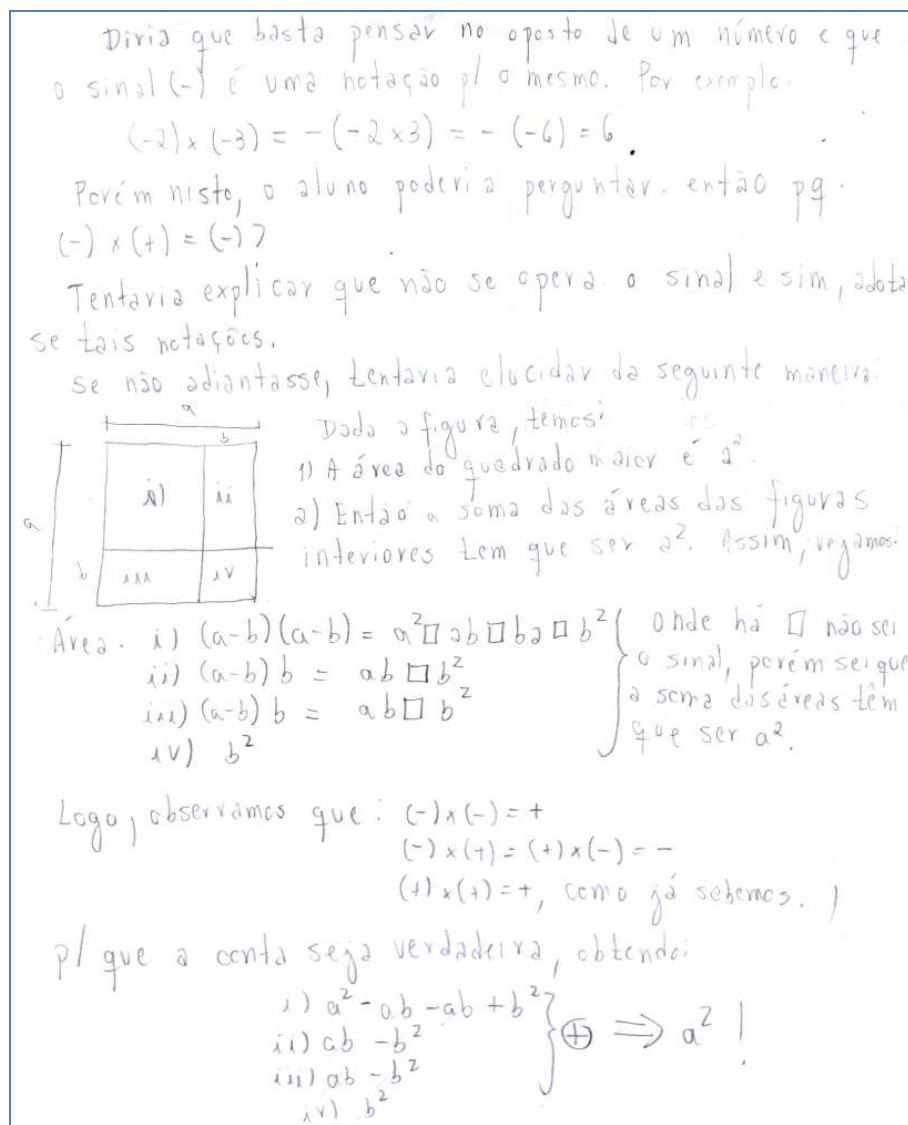 Diria que basta pensar no oposto de um número e que
o sinal (-) é uma notação p/ o mesmo. Por exemplo.
(-2) x (-3) = - (-2 x 3) = - (-6) = 6.
Porém nisto, o aluno poderia perguntar. então pq.
(-) x (+) = (-)?
Tentaria explicar que não se opera o sinal e sim, adota
se tais notações.
Se não adiantasse, tentaria elucidar da seguinte maneira:
a
b
Dada a figura, temos:
1) A área do quadrado maior é a².
i)
ii
a
2) Então a soma das áreas das figuras
interiores tem que ser a². Assim, vejamos:
b
iii
iv
Área. i) (a-b)(a-b) = a² □ ab □ ba □ b²
ii) (a-b) b = ab □ b²
iii) (a-b) b = ab □ b²
iv) b²
Onde há □ não sei
o sinal, porém sei que
a soma das áreas têm
que ser a².
Logo, observamos que: (-) x (-) = +
(-) x (+) = (+) x (-) = -
(+) x (+) = +, como já sabemos.
p/ que a conta seja verdadeira, obtendo:
i) a² - ab - ab + b²
ii) ab - b²
iii) ab - b²
iv) b²
⊕ ⇒ a² !